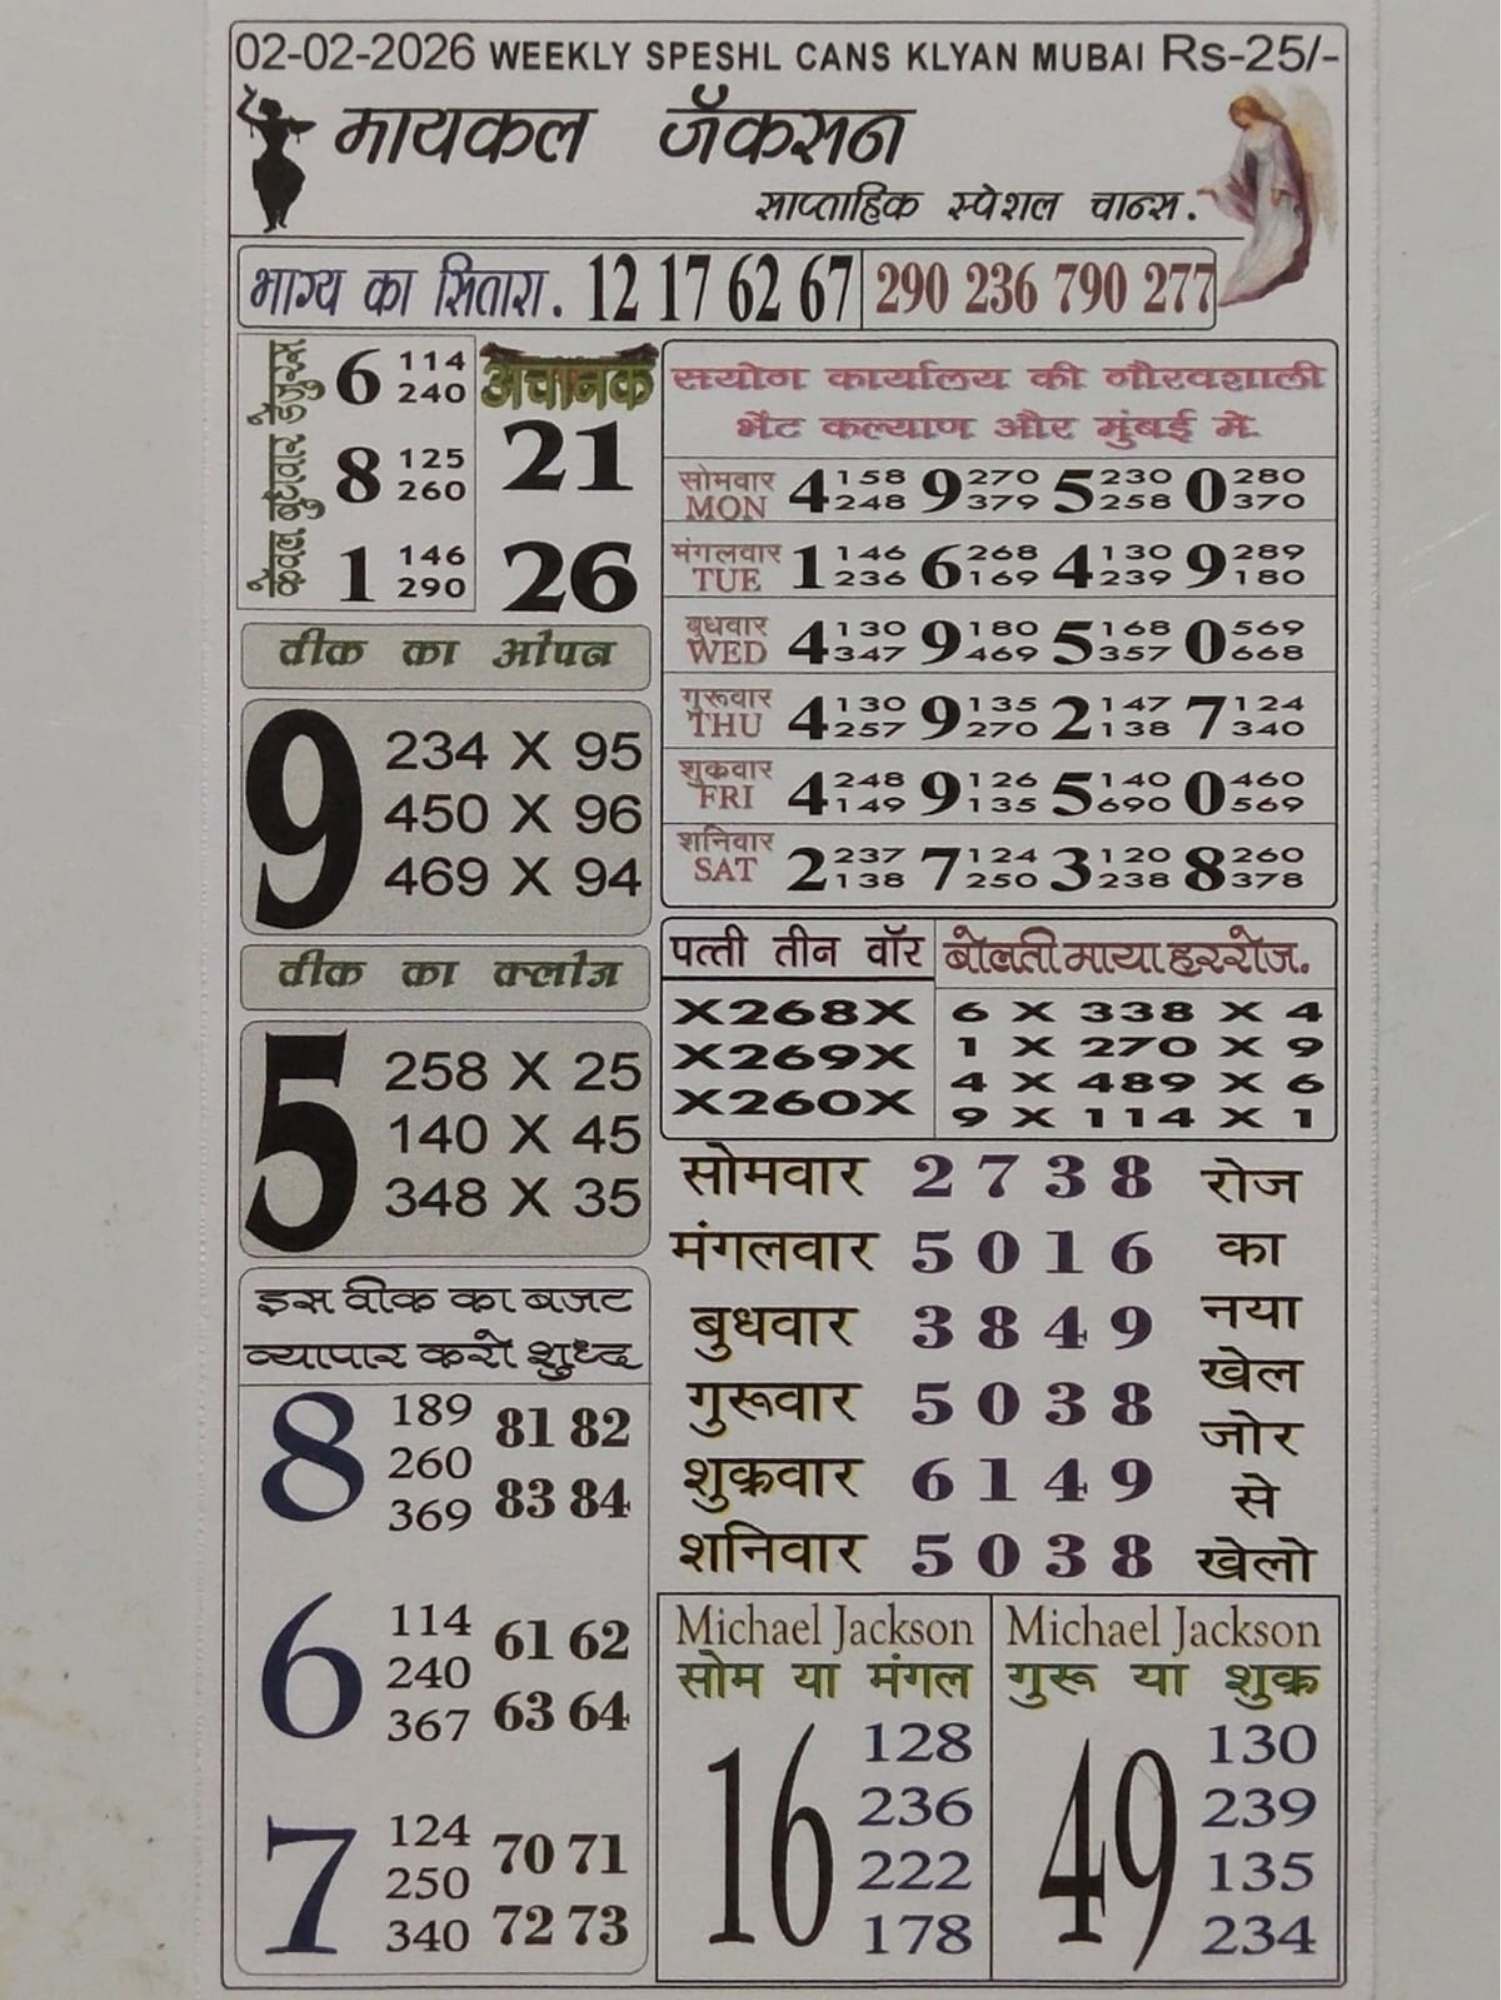 02-02-2026 WEEKLY SPESHL CANS KLYAN MUBAI Rs-25/-
मायकल जॅकसन
साप्ताहिक स्पेशल चान्स.
भाग्य का सितारा. 12 17 62 67 290 236 790 277
केवल बुधवार डेंजुरस
6 114 240
8 125 260
1 146 290
अचानक
21
26
वीक का ओपन
9
234 X 95
450 X 96
469 X 94
वीक का क्लोज
5
258 X 25
140 X 45
348 X 35
इस वीक का बजट
व्यापार करो शुध्द
8 189 260 369 81 82 83 84
6 114 240 367 61 62 63 64
7 124 250 340 70 71 72 73
सयोग कार्यालय की गौरवशाली
भेंट कल्याण और मुंबई मे.
सोमवार MON 4 158 248 9 270 379 5 230 258 0 280 370
मंगलवार TUE 1 146 236 6 268 169 4 130 239 9 289 180
बुधवार WED 4 130 347 9 180 469 5 168 357 0 569 668
गुरूवार THU 4 130 257 9 135 270 2 147 138 7 124 340
शुक्रवार FRI 4 248 149 9 126 135 5 140 690 0 460 569
शनिवार SAT 2 237 138 7 124 250 3 120 238 8 260 378
पत्ती तीन वॉर
X268X
X269X
X260X
बोलती माया हररोज.
6 X 338 X 4
1 X 270 X 9
4 X 489 X 6
9 X 114 X 1
सोमवार 2 7 3 8
मंगलवार 5 0 1 6
बुधवार 3 8 4 9
गुरूवार 5 0 3 8
शुक्रवार 6 1 4 9
शनिवार 5 0 3 8
रोज
का
नया
खेल
जोर
से
खेलो
Michael Jackson
सोम या मंगल
16
128
236
222
178
Michael Jackson
गुरू या शुक्र
49
130
239
135
234